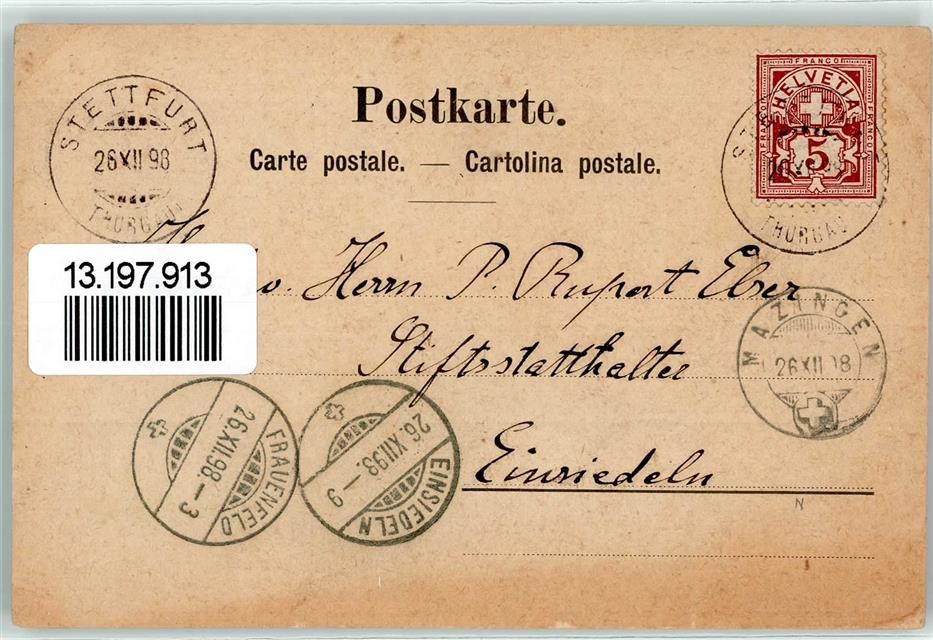 Postkarte.
Carte postale. — Cartolina postale.
STETTFURT
26 XII 98
THURGAU
FRANCO
HELVETIA
FRANCO
FRANCO
5
THURGAU
13.197.913
v. Herrn P. Rupert Eber
Stiftsstatthalter
Einsiedeln
MAZINGEN
26 XII 98
FRAUENFELD
26.XII.98.-3
EINSIEDELN
26.XII.98.-9
N